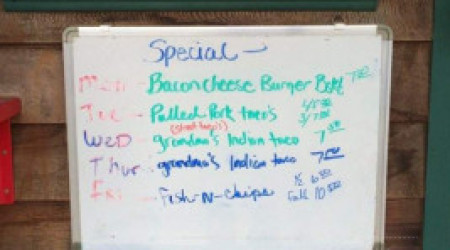 Special
Mon - Bacon cheese Burger Bskt 7.00
Tue - Pulled Pork taco's 3/7.00
(street taco's)
WED - grandma's Indian taco 7.00
Thur - grandma's Indian taco 7.00
Fri - Fish-N-Chips ½ 6.00
Full 10.00